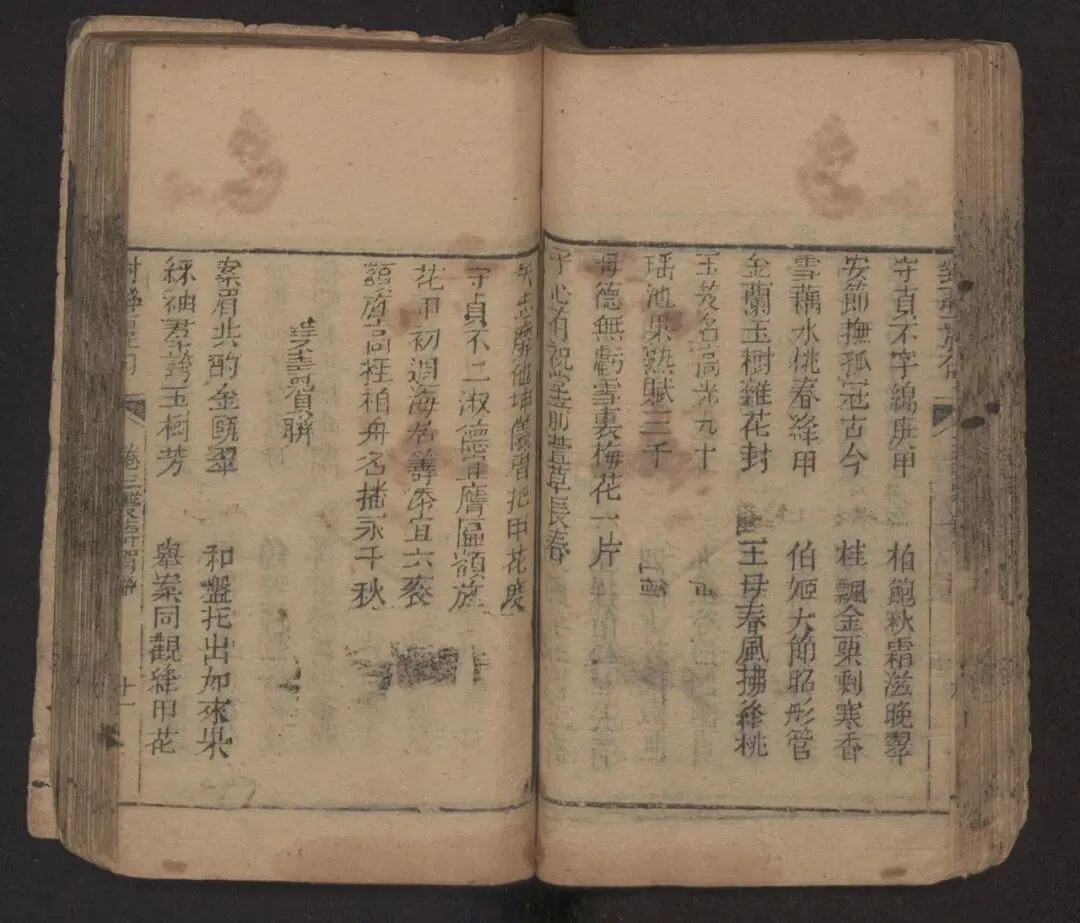 守貞不字綿庚甲 柏飽秋霜滋晚翠
安節撫孤冠古今 桂飄金粟剩寒香
雪藕水桃春絳甲 伯姬大節昭彤管
金蘭玉樹雜花封 王母春風拂絳桃
玉 名高 九十
瑶池果熟賦三千
母德無虧雪裏梅花一片
子心有祝堂前萱草長春
矢志靡他坤 把甲花度
守貞不二淑德宜膺匾額旌
花甲初週海屋籌添宜六袠
高柱柏舟名播永千秋
雙壽賀聯
案眉共酌金甌翠 和盤托出如來果
綵袖羣誇玉樹芳 舉案同觀絳甲花
卷三雙壽賀聯 十一